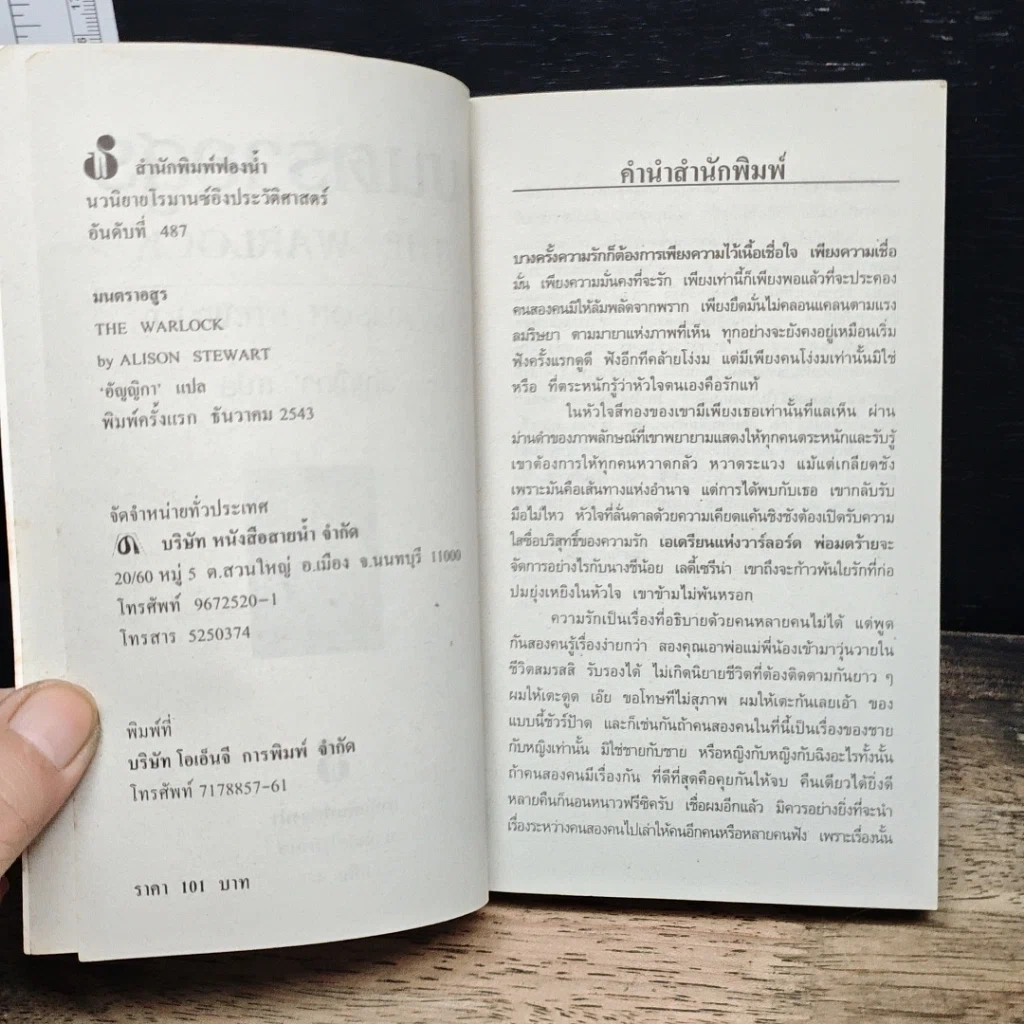 สำนักพิมพ์ฟองน้ำ
นวนิยายโรมานซ์อิงประวัติศาสตร์
อันดับที่ 487
มนตราอสูร
THE WARLOCK
by ALISON STEWART
'อัญญิกา' แปล
พิมพ์ครั้งแรก ธันวาคม 2543
จัดจำหน่ายทั่วประเทศ
บริษัท หนังสือสายน้ำ จำกัด
20/60 หมู่ 5 ต.สวนใหญ่ อ.เมือง จ.นนทบุรี 11000
โทรศัพท์ 9672520-1
โทรสาร 5250374
พิมพ์ที่
บริษัท โอเอ็นจี การพิมพ์ จำกัด
โทรศัพท์ 7178857-61
ราคา 101 บาท
คำนำสำนักพิมพ์
บางครั้งความรักก็ต้องการเพียงความไว้เนื้อเชื่อใจ เพียงความเชื่อ
มั่น เพียงความมั่นคงที่จะรัก เพียงเท่านี้ก็เพียงพอแล้วที่จะประคอง
คนสองคนมิให้ล้มพลัดจากพราก เพียงยึดมั่นไม่คลอนแคลนตามแรง
ลมริษยา ตามมายาแห่งภาพที่เห็น ทุกอย่างจะยังคงอยู่เหมือนเริ่ม
ฟังครั้งแรกดูดี ฟังอีกทีคล้ายโง่งม แต่มีเพียงคนโง่งมเท่านั้นมิใช่
หรือ ที่ตระหนักรู้ว่าหัวใจตนเองคือรักแท้
ในหัวใจสีทองของเขามีเพียงเธอเท่านั้นที่แลเห็น ผ่าน
ม่านดำของภาพลักษณ์ที่เขาพยายามแสดงให้ทุกคนตระหนักและรับรู้
เขาต้องการให้ทุกคนหวาดกลัว หวาดระแวง แม้แต่เกลียดชัง
เพราะมันคือเส้นทางแห่งอำนาจ แต่การได้พบกับเธอ เขากลับรับ
มือไม่ไหว หัวใจที่ลั่นดาลด้วยความเคียดแค้นชิงชังต้องเปิดรับความ
ใสซื่อบริสุทธิ์ของความรัก เอเดรียนแห่งวาร์ลอร์ด พ่อมดร้ายจะ
จัดการอย่างไรกับนางชีน้อย เลดี้เซรีน่า เขาถึงจะก้าวพ้นใยรักที่ก่อ
ปมยุ่งเหยิงในหัวใจ เขาข้ามไม่พ้นหรอก
ความรักเป็นเรื่องที่อธิบายด้วยคนหลายคนไม่ได้ แต่พูด
กันสองคนรู้เรื่องง่ายกว่า ลองคุณเอาพ่อแม่พี่น้องเข้ามาวุ่นวายใน
ชีวิตสมรสสิ รับรองได้ ไม่เกิดนิยายชีวิตที่ต้องติดตามกันยาว ๆ
ผมให้เตะตูด เอ๊ย ขอโทษทีไม่สุภาพ ผมให้เตะก้นเลยเอ้า ของ
แบบนี้ชัวร์ป้าด และก็เช่นกันถ้าคนสองคนในที่นี้เป็นเรื่องของชาย
กับหญิงเท่านั้น มิใช่ชายกับชาย หรือหญิงกับหญิงกับฉิงอะไรทั้งนั้น
ถ้าคนสองคนมีเรื่องกัน ที่ดีที่สุดคือคุยกันให้จบ คืนเดียวได้ยิ่งดี
หลายคืนก็นอนหนาวฟรีซิครับ เชื่อผมอีกแล้ว มิควรอย่างยิ่งที่จะนำ
เรื่องระหว่างคนสองคนไปเล่าให้คนอีกคนหรือหลายคนฟัง เพราะเรื่องนั้น